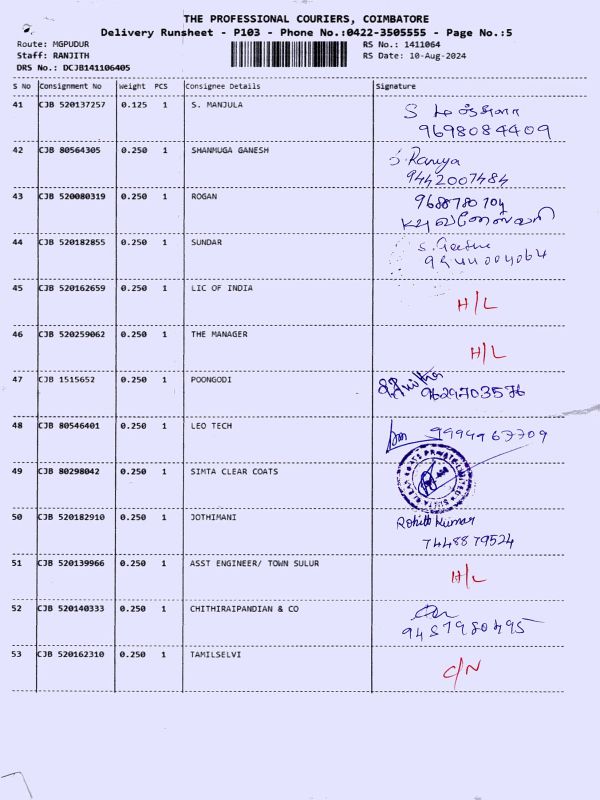 THE PROFESSIONAL COURIERS, COIMBATORE
Delivery Runsheet - P103 - Phone No.:0422-3505555 - Page No.:5
Route: MGPUDUR RS No.: 1411064
Staff: RANJITH RS Date: 10-Aug-2024
DRS No.: DCJB141106405
S No Consignment No Weight PCS Consignee Details Signature
41 CJB 520137257 0.125 1 S. MANJULA S
9698084409
42 CJB 80564305 0.250 1 SHANMUGA GANESH S. Ramya
9442007484
43 CJB 520080319 0.250 1 ROGAN 9688780704
44 CJB 520182855 0.250 1 SUNDAR S. Geetha
9944004064
45 CJB 520162659 0.250 1 LIC OF INDIA H/L
46 CJB 520259062 0.250 1 THE MANAGER H/L
47 CJB 1515652 0.250 1 POONGODI 9629703576
48 CJB 80546401 0.250 1 LEO TECH 9994967709
49 CJB 80298042 0.250 1 SIMTA CLEAR COATS SIMTA CLEAR COATS PRIVATE LIMITED
50 CJB 520182910 0.250 1 JOTHIMANI Rohith Kumar
7448879524
51 CJB 520139966 0.250 1 ASST ENGINEER/ TOWN SULUR H/L
52 CJB 520140333 0.250 1 CHITHIRAIPANDIAN & CO
53 CJB 520162310 0.250 1 TAMILSELVI C/N